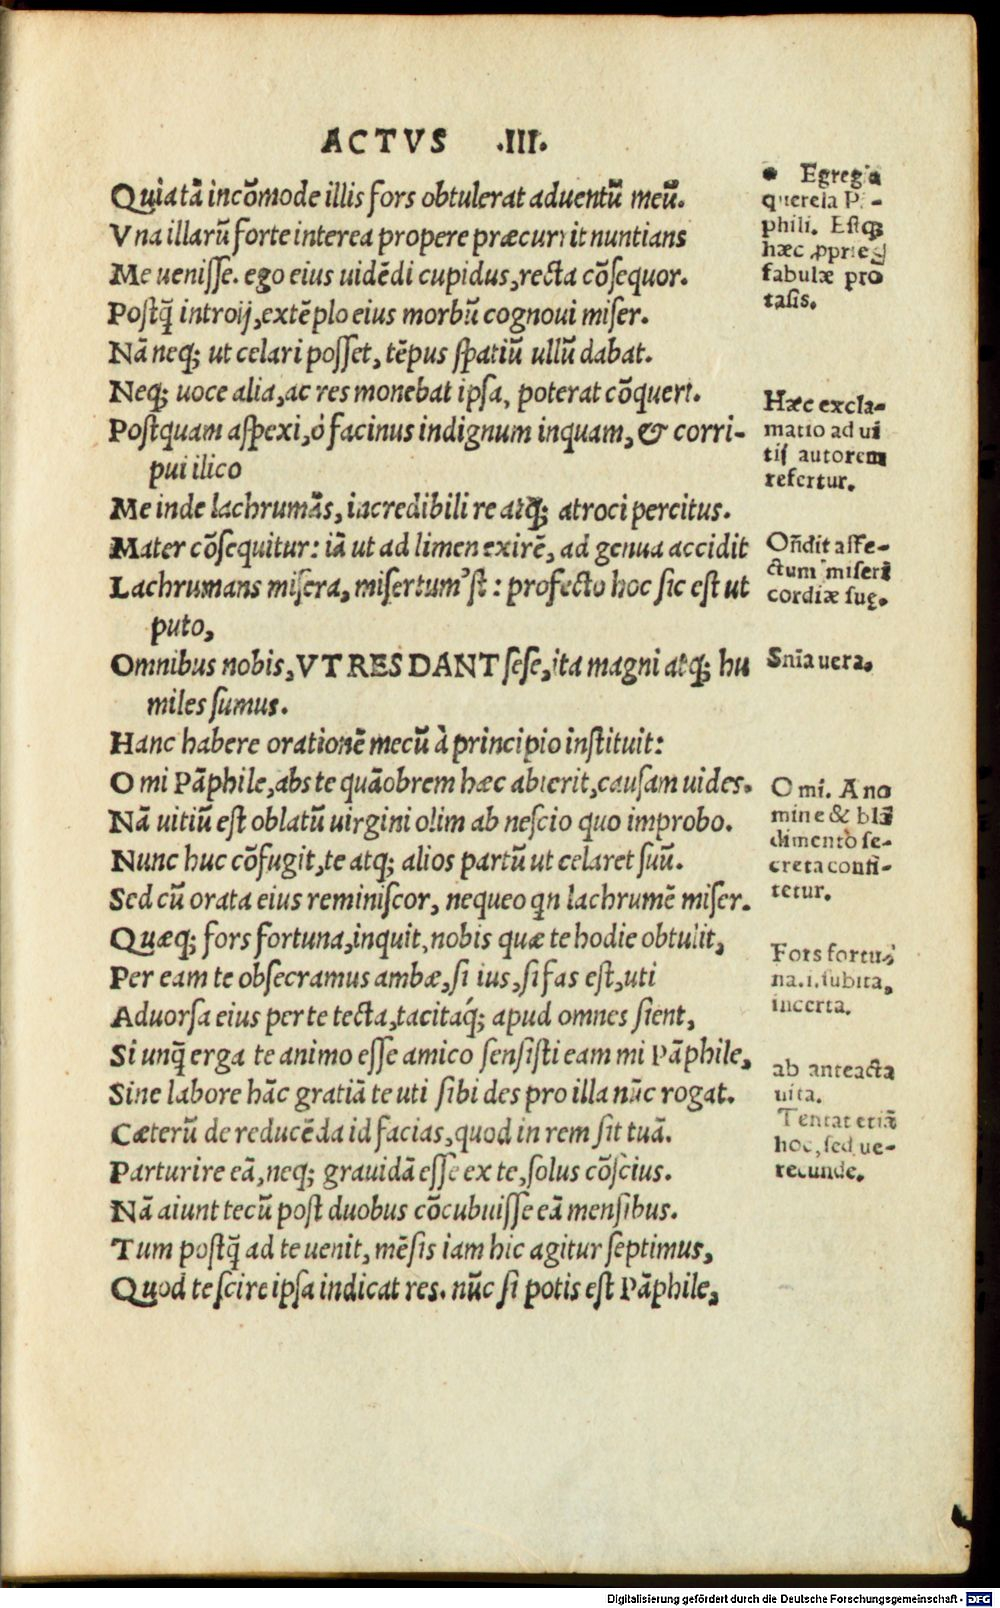 ACTVS .III.
Quia tã incõmode illis fors obtulerat aduentũ meũ.
Vna illarũ forte interea propere præcurrit nuntians
Me uenisse. ego eius uidẽdi cupidus, recta cõsequor.
Postq̃ introij, extẽplo eius morbũ cognoui miser.
Nã neq; ut celari posset, tẽpus spatiũ ullũ dabat.
Neq; uoce alia, ac res monebat ipsa, poterat cõqueri.
Postquam aspexi, ò facinus indignum inquam, & corri-
pui ilico
Me inde lachrumãs, incredibili re atq; atroci percitus.
Mater cõsequitur: iã ut ad limen exirẽ, ad genua accidit
Lachrumans misera, misertum'st: profecto hoc sic est ut
puto,
Omnibus nobis, VT RES DANT sese, ita magni atq; hu
miles sumus.
Hanc habere orationẽ mecũ à principio instituit:
O mi Pãphile, abs te quãobrem hæc abierit, causam uides.
Nã uitiũ est oblatũ uirgini olim ab nescio quo improbo.
Nunc huc cõfugit, te atq; alios partũ ut celaret suũ.
Sed cũ orata eius reminiscor, nequeo qn lachrumẽ miser.
Quæq; fors fortuna, inquit, nobis quæ te hodie obtulit,
Per eam te obsecramus ambæ, si ius, si fas est, uti
Aduorsa eius per te tecta, tacitaq́; apud omnes sient,
Si unq̃ erga te animo esse amico sensisti eam mi Pãphile,
Sine labore hãc gratiã te uti sibi des pro illa nũc rogat.
Cæterũ de reducẽda id facias, quod in rem sit tuã.
Parturire eã, neq; grauidã esse ex te, solus cõscius.
Nã aiunt tecũ post duobus cõcubuisse eã mensibus.
Tum postq̃ ad te uenit, mẽsis iam hic agitur septimus,
Quod te scire ipsa indicat res. nũc si potis est Pãphile,
Egregia
querela P
phili. Estq;
hæc
fabulæ pro
tasis.
Hæc excla-
matio ad ui
tij autorem
refertur.
Oñdit affe-
ctum miseri
cordiæ suę.
Snia uera.
O mi. A no
mine & blã
dimento se-
creta confi-
tetur.
Fors fortu-
na .i. subita,
incerta.
ab anteacta
uita.
Tentat etiã
hoc, sed ue-
recunde.
Digitalisierung gefördert durch die Deutsche Forschungsgemeinschaft - DFG